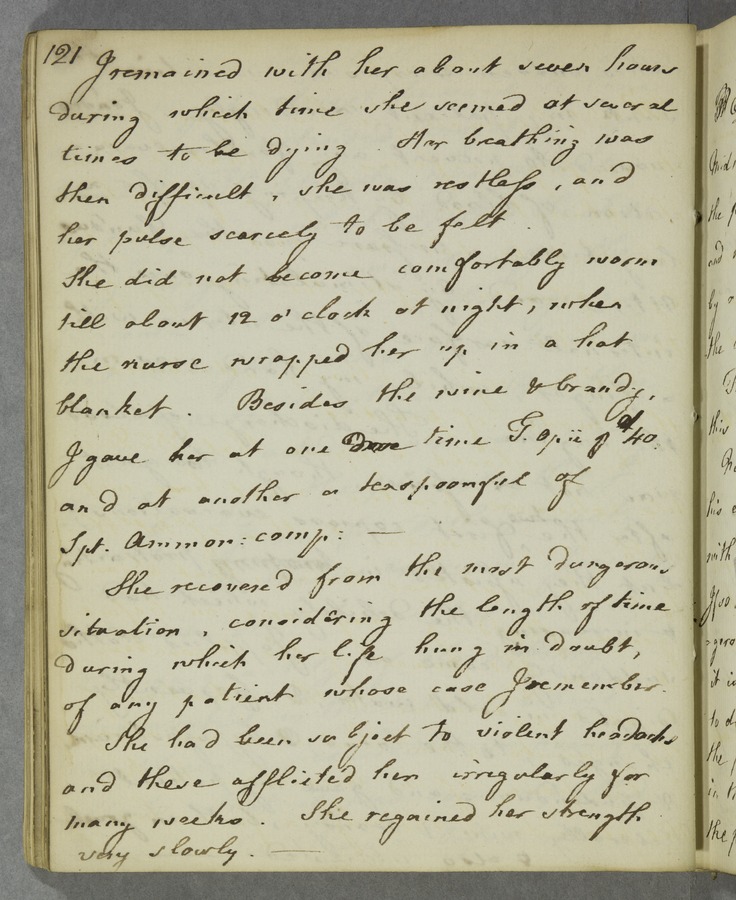 121
I remained with her about seven hours
during which time she seemed at several
times to be dying. Her breathing was
then difficult, she was restless, and
her pulse scarcely to be felt.
She did not become comfortably warm
till about 12 o'clock at night, when
the nurse wrapped her up in a hot
blanket. Besides the wine & brandy,
I gave her at one time T. opii g 40.
and at another a teaspoonful of
Spt. Ammon: comp: —
She recovered from the most dangerous
situation, considering the length of time
during which her life hung in doubt,
of any patient whose case I remember.
She had been subject to violent headachs
and these afflicted her irregularly for
many weeks. She regained her strength
very slowly. —